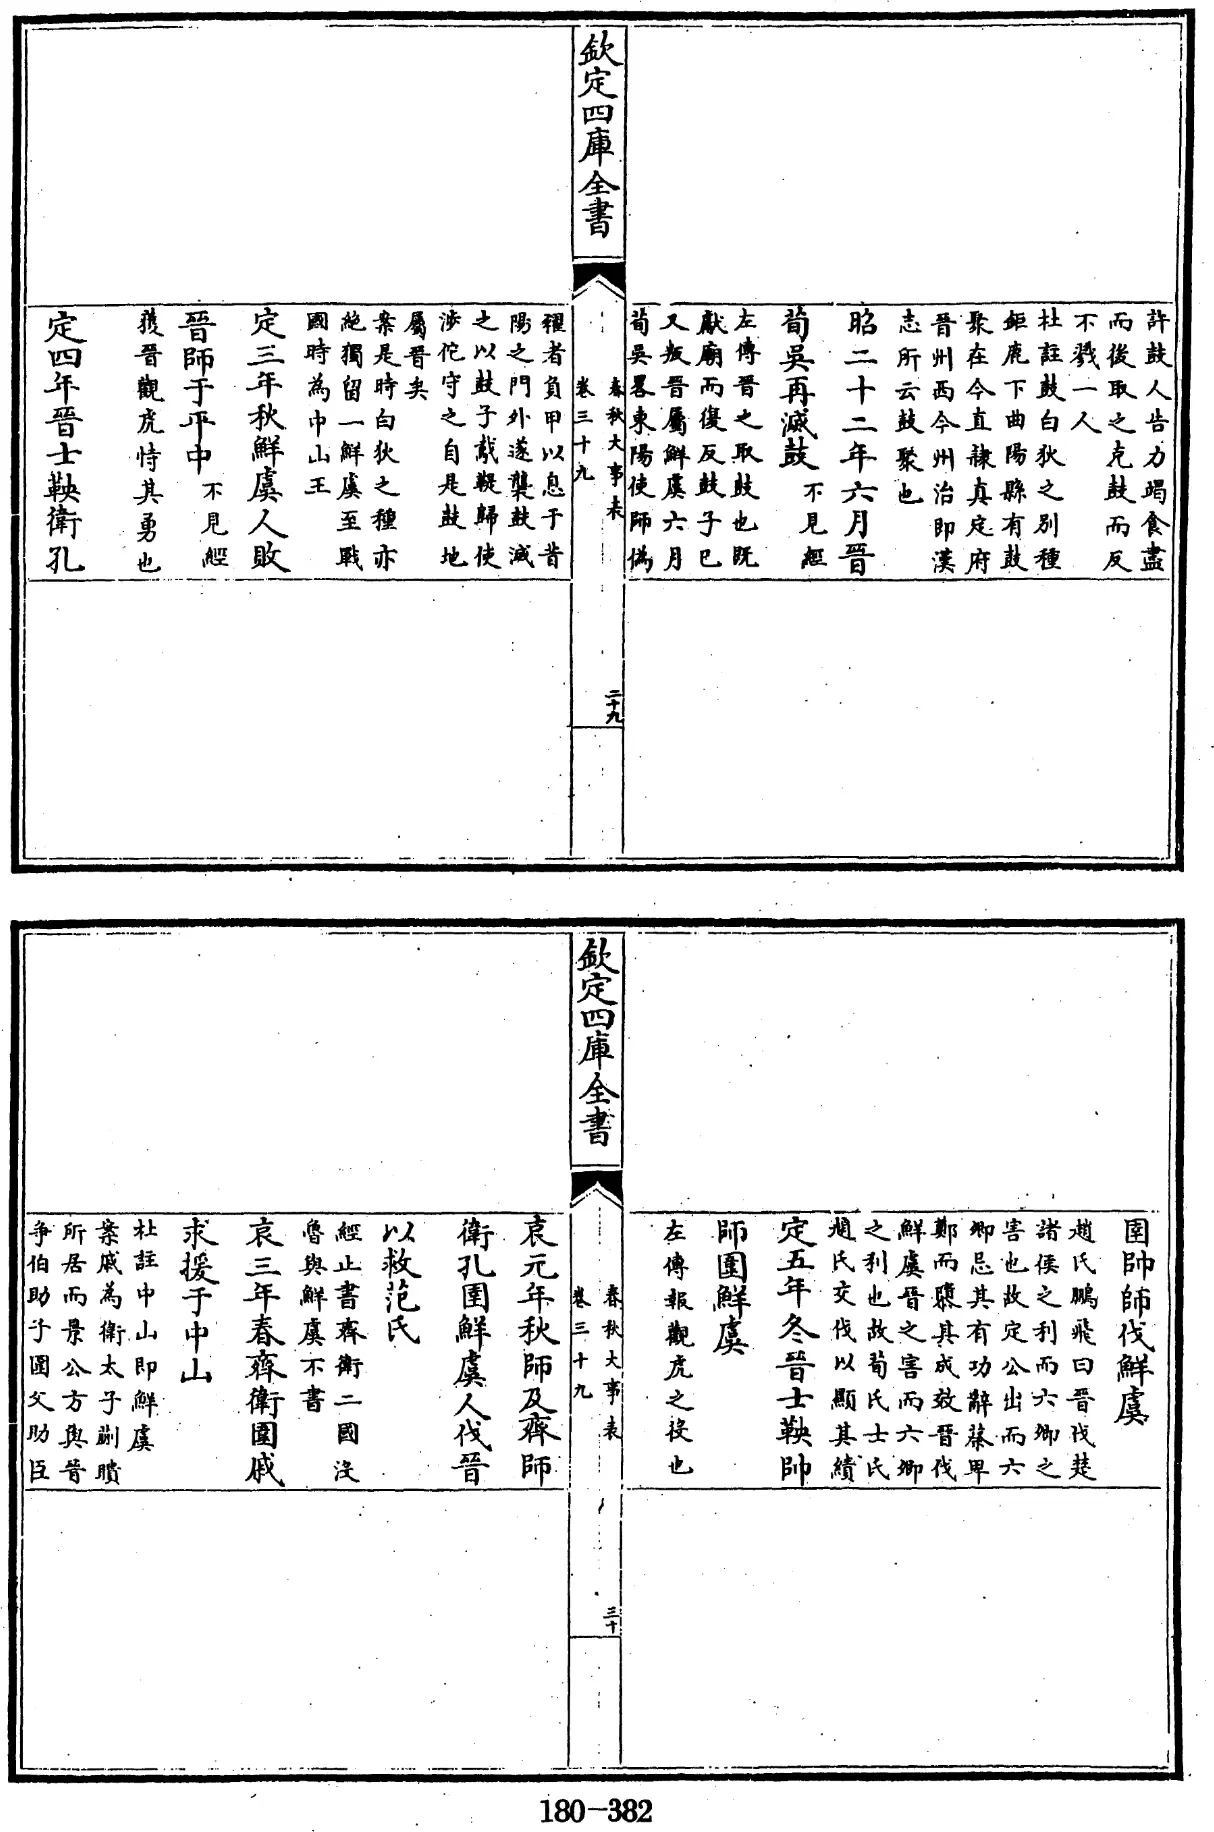 許鼓人告力竭食盡
而後取之克鼓而反
不戮一人
杜註鼓白狄之別種
鉅鹿下曲陽縣有鼓
聚在今直隸真定府
晉州西今州治即漢
志所云鼓聚也
昭二十二年六月晉
荀吳再滅鼓 不見經
左傳晉之取鼓也既
獻廟而復反鼓子已
又叛晉屬鮮虞六月
荀吳畧東陽使師偽
欽定四庫全書
春秋大事表
卷三十九
二十九
糴者負甲以息于昔
陽之門外遂襲鼓滅
之以鼓子䳒鞮歸使
涉佗守之自是鼓地
屬晉矣
案是時白狄之種亦
絶獨留一鮮虞至戰
國時為中山王
定三年秋鮮虞人敗
晉師于平中 不見經
獲晉觀虎恃其勇也
定四年晉士鞅衛孔
圉帥師伐鮮虞
趙氏鵬飛曰晉伐楚
諸侯之利而六卿之
害也故定公出而六
卿忌其有功辭蔡卑
鄭而隳其成效晉伐
鮮虞晉之害而六卿
之利也故荀氏士氏
趙氏交伐以顯其績
定五年冬晉士鞅帥
師圍鮮虞
左傳報觀虎之役也
欽定四庫全書
春秋大事表
卷三十九
三十
哀元年秋師及齊師
衛孔圉鮮虞人伐晉
以救范氏
經止書齊衛二國没
魯與鮮虞不書
哀三年春齊衛圍戚
求援于中山
杜註中山即鮮虞
案戚為衛太子蒯聵
所居而景公方與晉
争伯助子圍父助臣
180-382